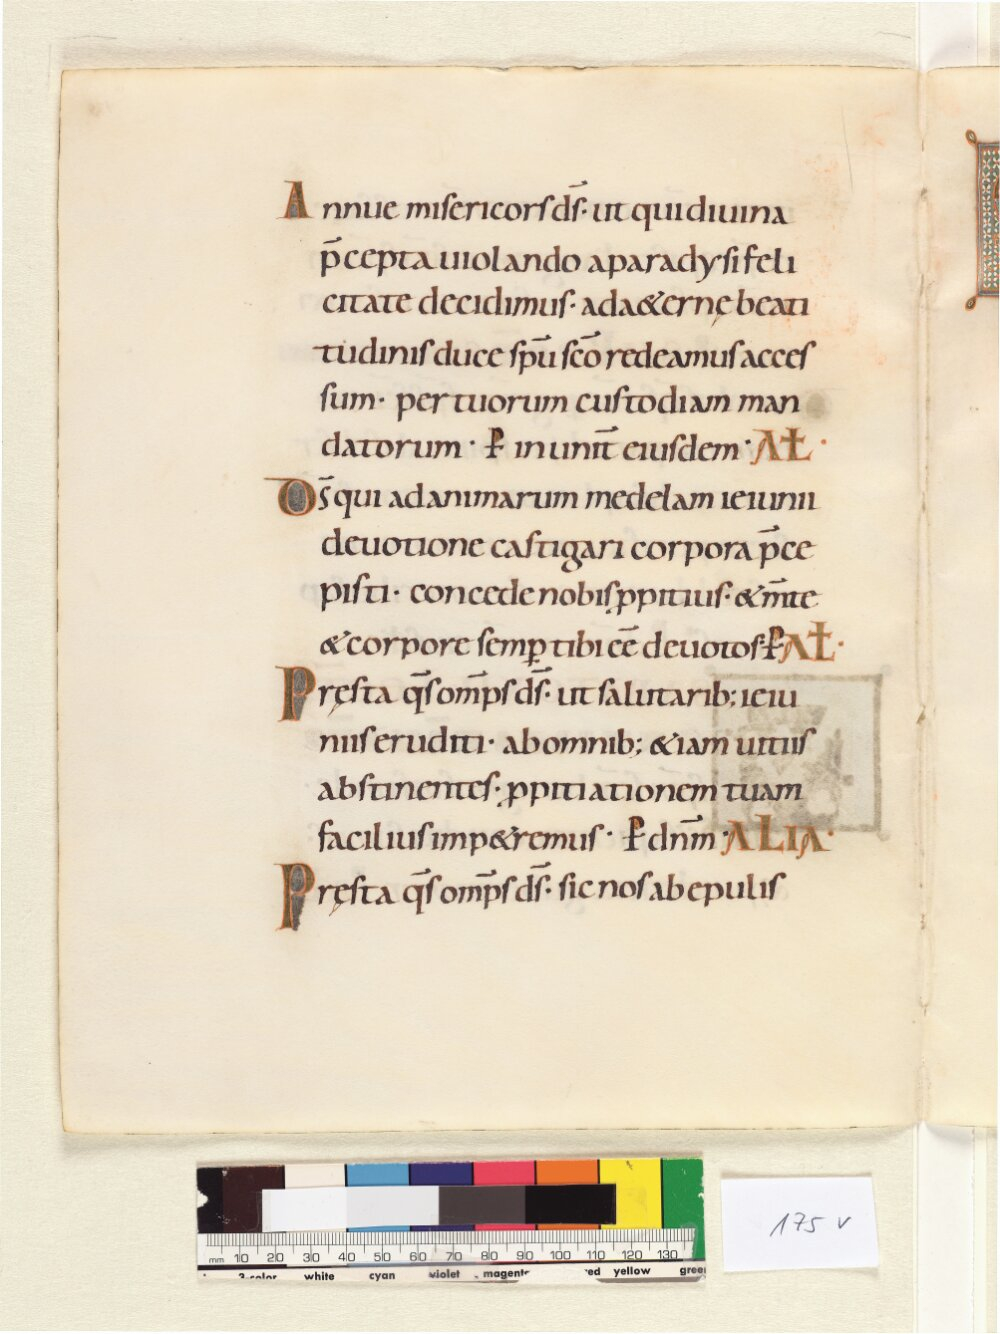 Annue misericors d̄s· ut qui diuina
p̄cepta uiolando a paradysi feli
citate decidimus· ad a&ernę beati
tudinis duce sp̄u sc̄o redeamus acces
sum· per tuorum custodiam man
datorum · P̄ in unīt eiusdem · AŁ ·
D̄s qui ad animarum medelam ieiunii
deuotione castigari corpora p̄ce
pisti· concede nobis ꝓpitius· & m̄te
& corpore semꝑ tibi eē deuotos· P̄ AŁ·
Pręsta q̄s omp̄s d̄s· ut salutarib; ieiu
niis eruditi· ab omnib; &iam uitiis
abstinentes· ꝓpitiationem tuam
facilius imp&remus · P̄ dn̄m · ALIA ·
Pręsta q̄s omp̄s d̄s· sic nos ab epulis
175 v
mm 10 20 30 40 50 60 70 80 90 100 110 120 130
3-color white cyan violet magenta red yellow green